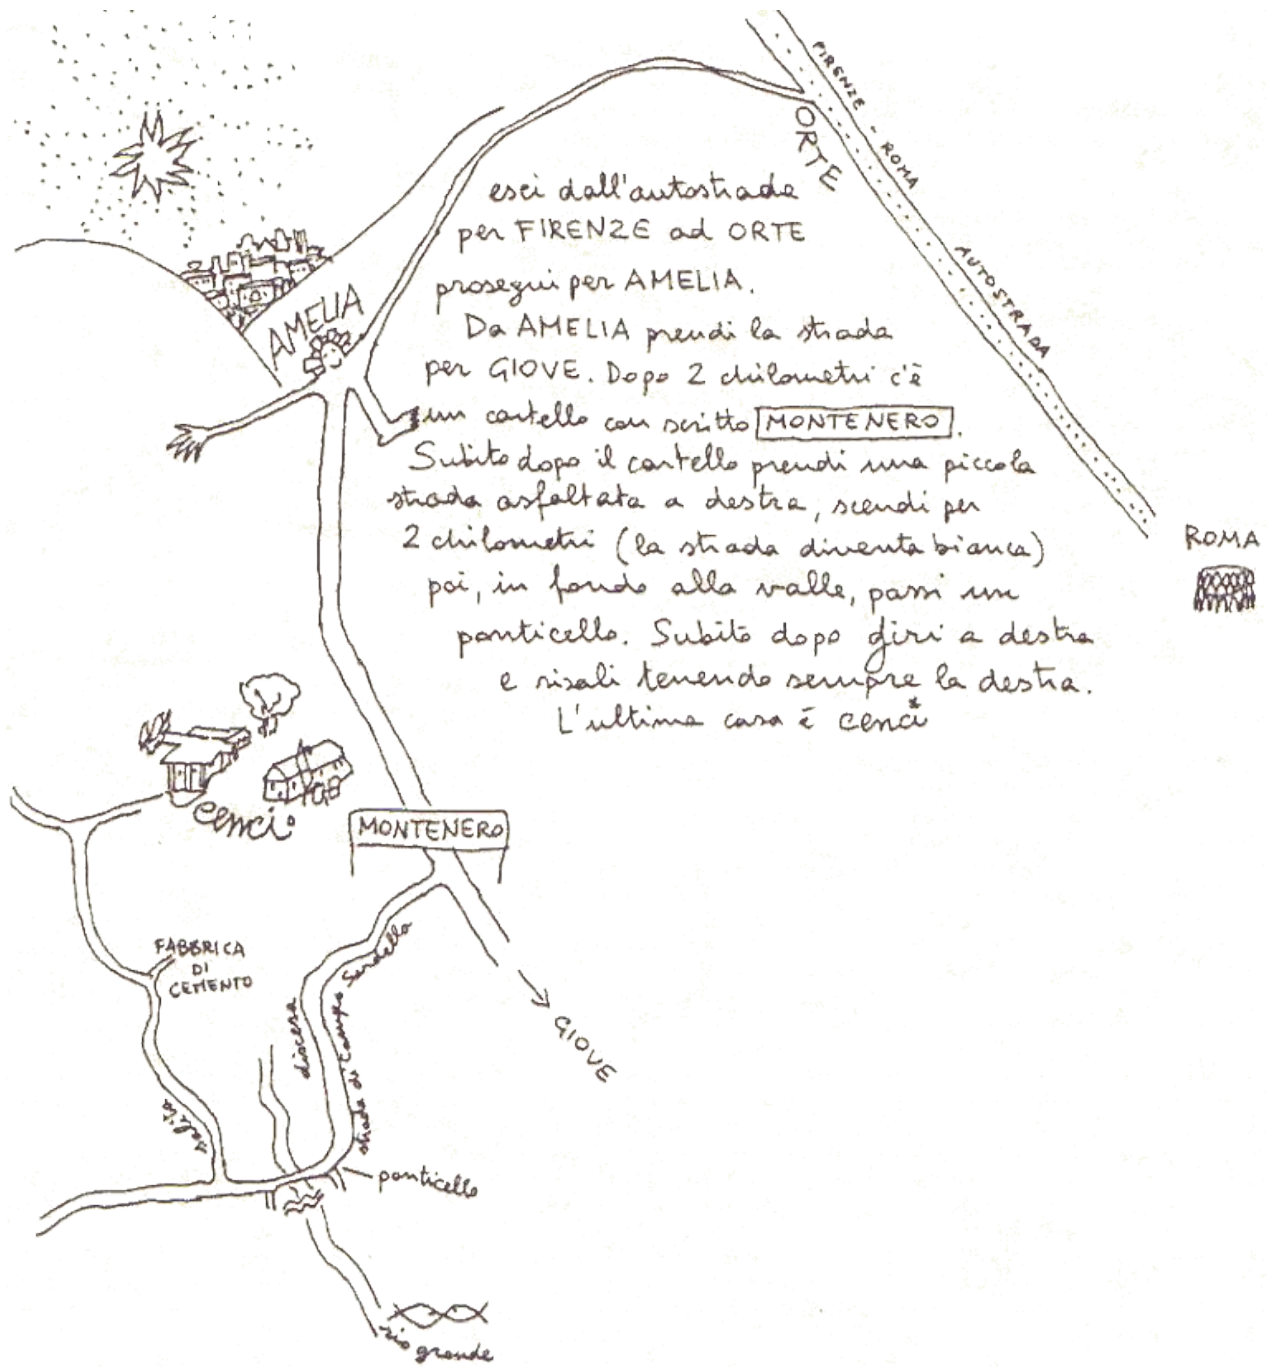 FIRENZE - ROMA
AUTOSTRADA
ORTE
esci dall'autostrada
per FIRENZE ad ORTE
prosegui per AMELIA.
Da AMELIA prendi la strada
per GIOVE. Dopo 2 chilometri c'è
un cartello con scritto MONTENERO.
Subito dopo il cartello prendi una piccola
strada asfaltata a destra, scendi per
2 chilometri (la strada diventa bianca)
poi, in fondo alla valle, passi un
ponticello. Subito dopo giri a destra
e risali tenendo sempre la destra.
L'ultima casa è cenci*
AMELIA
ROMA
cenci
MONTENERO
FABBRICA
DI
CEMENTO
discesa
strada di Campo Sardello
GIOVE
salita
ponticello
rio grande